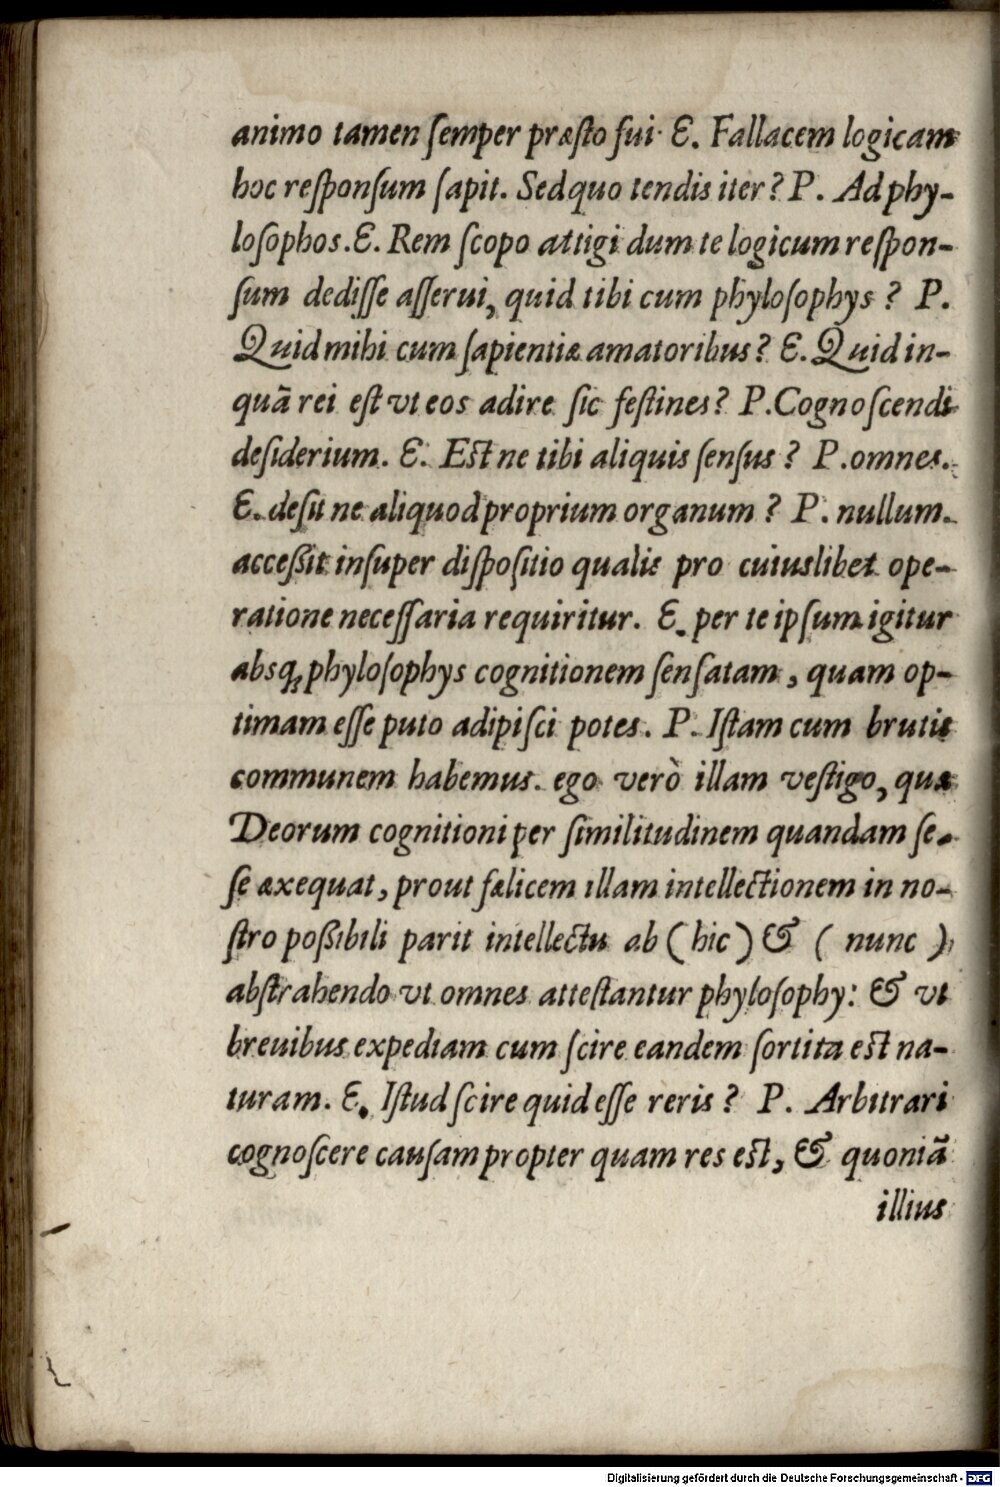 animo tamen ſemper præſto fui· E. Fallacem logicam
hoc reſponſum ſapit. Sed quo tendis iter? P. Ad phy-
loſophos. E. Rem ſcopo attigi dum te logicum reſpon-
ſum dediſſe aſſerui, quid tibi cum phyloſophys? P.
Quid mihi cum ſapientiæ amatoribus? E. Quid in-
quã rei eſt vt eos adire ſic feſtines? P. Cognoſcendi
deſiderium. E. Eſt ne tibi aliquis ſenſus? P. omnes.
E. deſit ne aliquod proprium organum? P. nullum.
acceßit inſuper diſpoſitio qualis pro cuiuslibet ope-
ratione neceſſaria requiritur. E. per te ipſum igitur
absq; phyloſophys cognitionem ſenſatam, quam op-
timam eſſe puto adipiſci potes. P. Iſtam cum brutis
communem habemus. ego verò illam veſtigo, quæ
Deorum cognitioni per ſimilitudinem quandam ſe-
ſe æxequat, prout fælicem illam intellectionem in no-
ſtro poßibili parit intellectu ab (hic) & (nunc)
abſtrahendo vt omnes atteſtantur phyloſophy: & vt
breuibus expediam cum ſcire eandem ſortita eſt na-
turam. E. Iſtud ſcire quid eſſe reris? P. Arbitrari
cognoſcere cauſam propter quam res eſt, & quoniã
illius
Digitalisierung gefördert durch die Deutsche Forschungsgemeinschaft - DFG